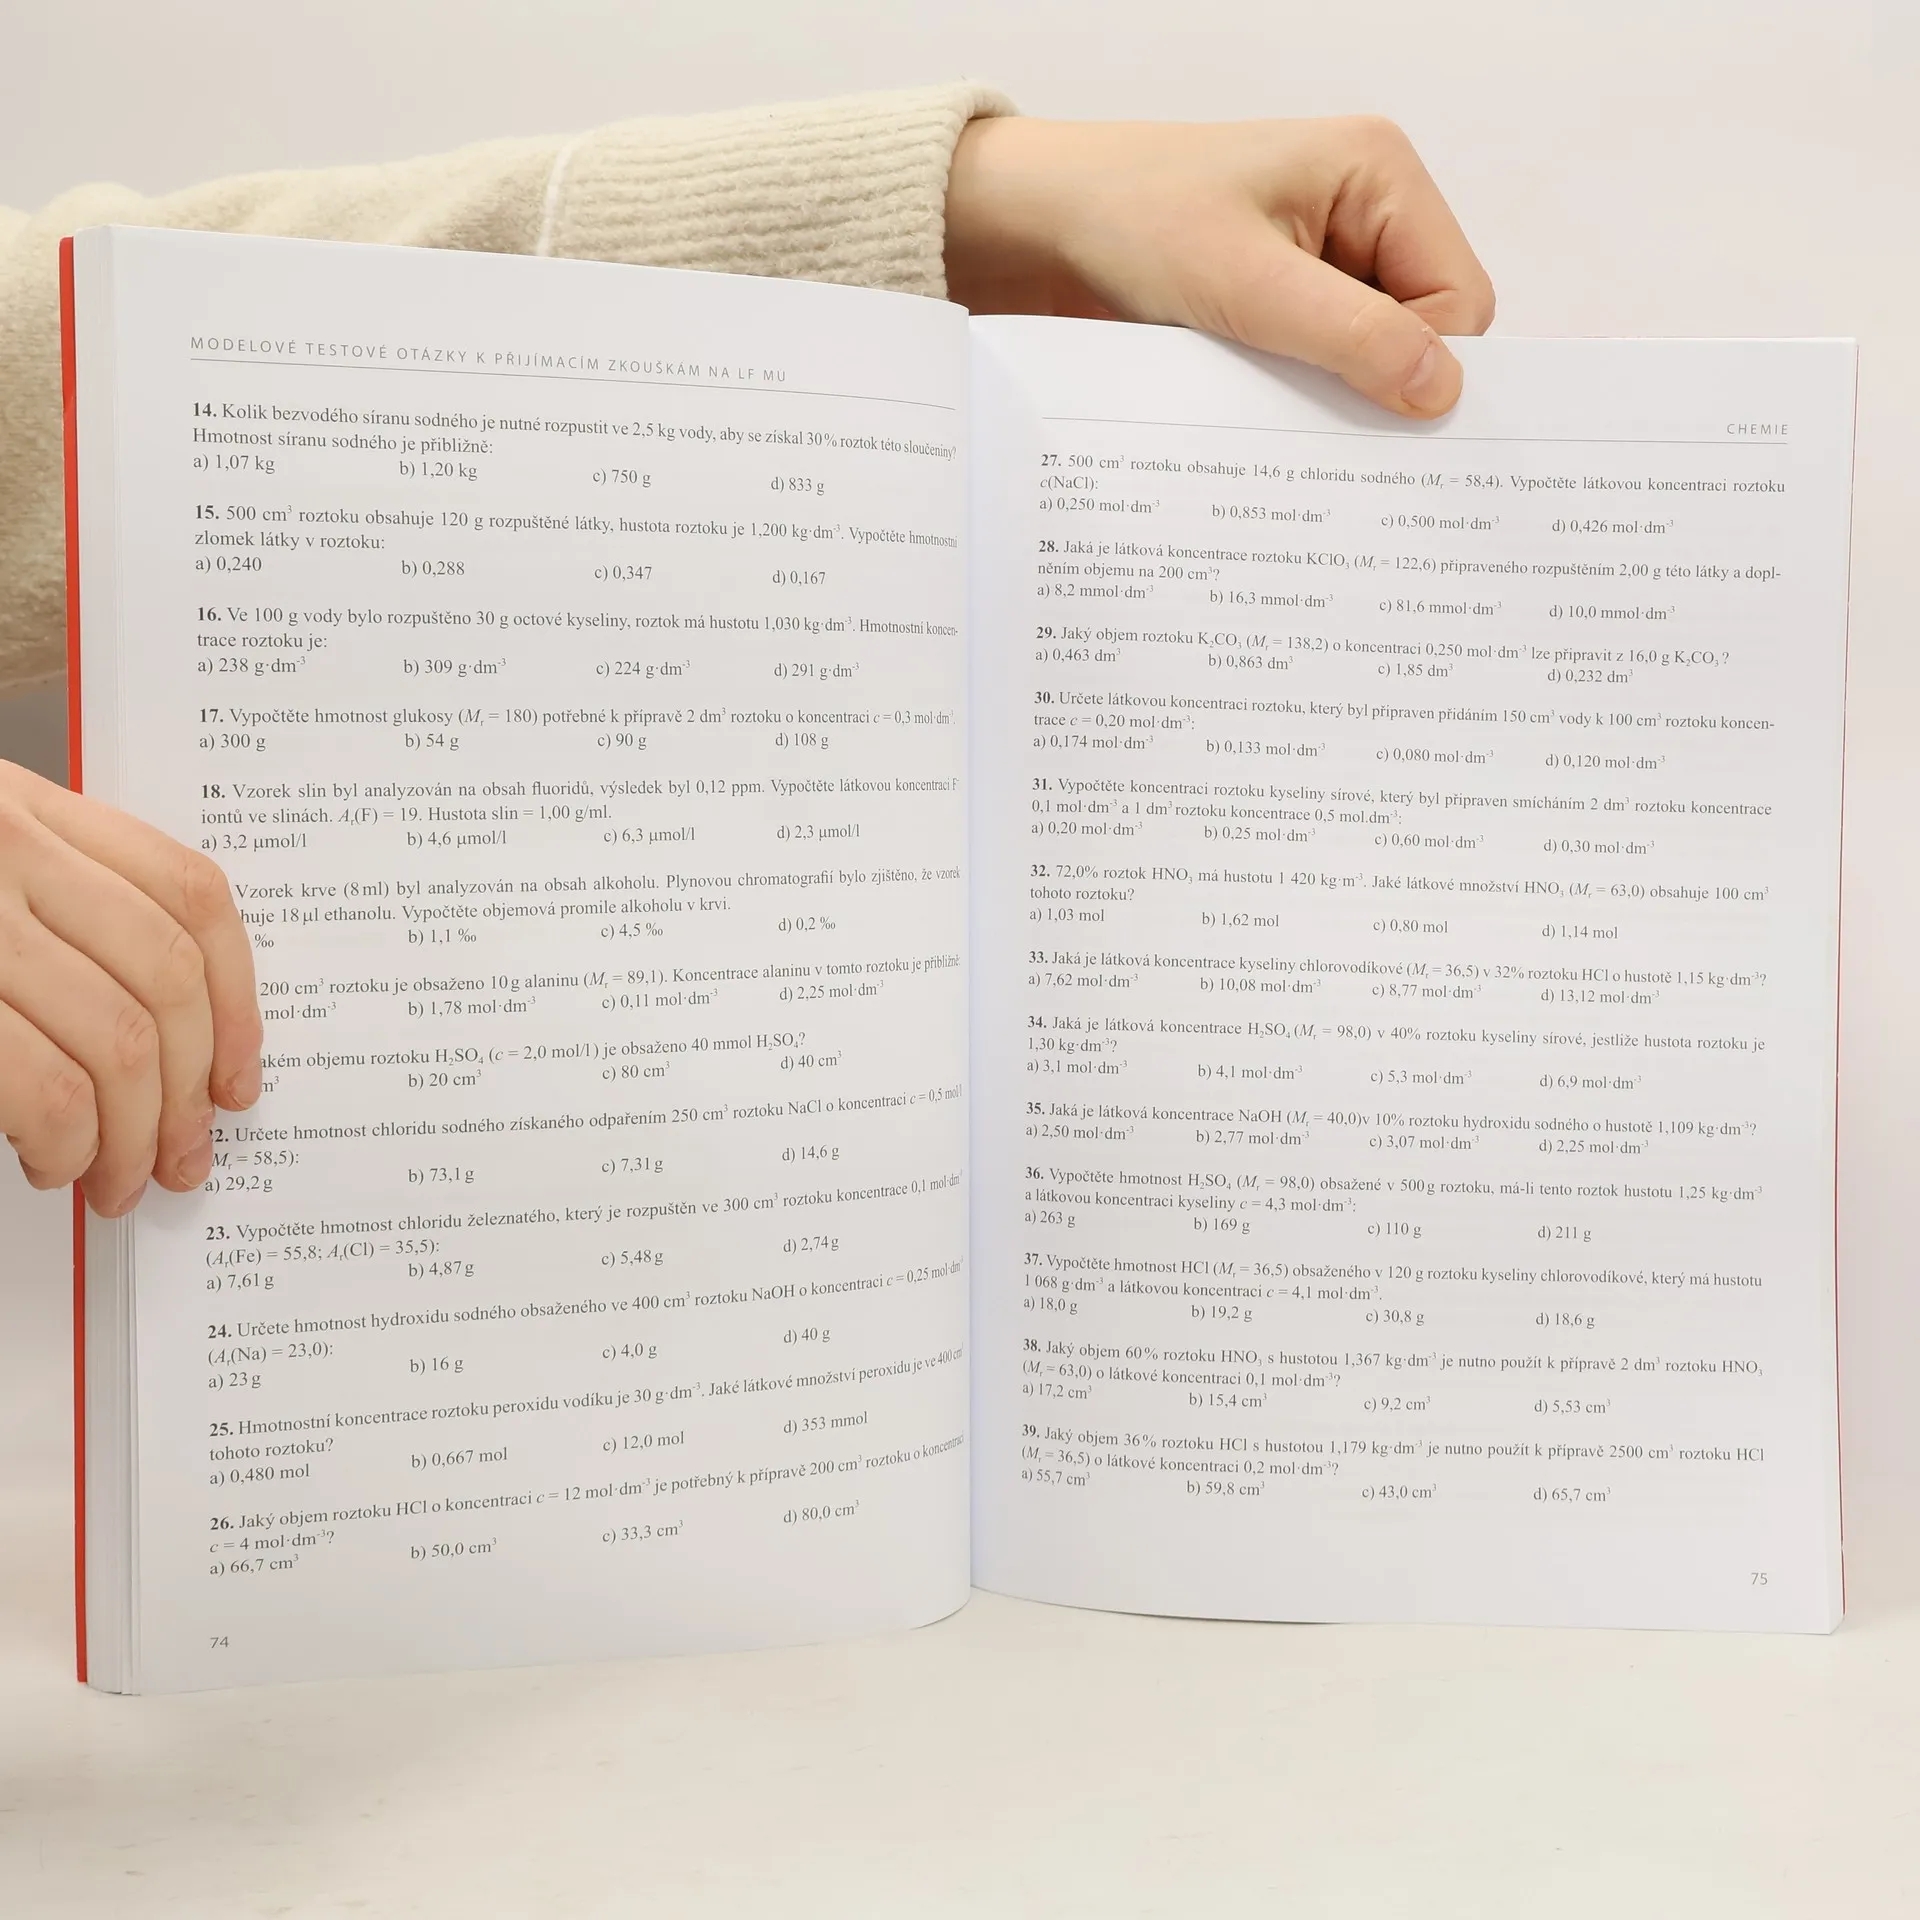 MODELOVÉ TESTOVÉ OTÁZKY K PŘIJÍMACÍM ZKOUŠKÁM NA LF MU
14. Kolik bezvodého síranu sodného je nutné rozpustit ve 2,5 kg vody, aby se získal 30% roztok této sloučeniny?
Hmotnost síranu sodného je přibližně:
a) 1,07 kg b) 1,20 kg c) 750 g d) 833 g
15. 500 cm³ roztoku obsahuje 120 g rozpuštěné látky, hustota roztoku je 1,200 kg·dm⁻³. Vypočtěte hmotnostní
zlomek látky v roztoku:
a) 0,240 b) 0,288 c) 0,347 d) 0,167
16. Ve 100 g vody bylo rozpuštěno 30 g octové kyseliny, roztok má hustotu 1,030 kg·dm⁻³. Hmotnostní koncen-
trace roztoku je:
a) 238 g·dm⁻³ b) 309 g·dm⁻³ c) 224 g·dm⁻³ d) 291 g·dm⁻³
17. Vypočtěte hmotnost glukosy (Mᵣ = 180) potřebné k přípravě 2 dm³ roztoku o koncentraci c = 0,3 mol·dm⁻³.
a) 300 g b) 54 g c) 90 g d) 108 g
18. Vzorek slin byl analyzován na obsah fluoridů, výsledek byl 0,12 ppm. Vypočtěte látkovou koncentraci F⁻
iontů ve slinách. Aᵣ(F) = 19. Hustota slin = 1,00 g/ml.
a) 3,2 μmol/l b) 4,6 μmol/l c) 6,3 μmol/l d) 2,3 μmol/l
Vzorek krve (8 ml) byl analyzován na obsah alkoholu. Plynovou chromatografií bylo zjištěno, že vzorek
huje 18 μl ethanolu. Vypočtěte objemová promile alkoholu v krvi.
‰ b) 1,1 ‰ c) 4,5 ‰ d) 0,2 ‰
200 cm³ roztoku je obsaženo 10 g alaninu (Mᵣ = 89,1). Koncentrace alaninu v tomto roztoku je přibližně:
mol·dm⁻³ b) 1,78 mol·dm⁻³ c) 0,11 mol·dm⁻³ d) 2,25 mol·dm⁻³
akém objemu roztoku H₂SO₄ (c = 2,0 mol/l) je obsaženo 40 mmol H₂SO₄?
m³ b) 20 cm³ c) 80 cm³ d) 40 cm³
22. Určete hmotnost chloridu sodného získaného odpařením 250 cm³ roztoku NaCl o koncentraci c = 0,5 mol/l
Mᵣ = 58,5):
a) 29,2 g b) 73,1 g c) 7,31 g d) 14,6 g
23. Vypočtěte hmotnost chloridu železnatého, který je rozpuštěn ve 300 cm³ roztoku koncentrace 0,1 mol·dm⁻³
(Aᵣ(Fe) = 55,8; Aᵣ(Cl) = 35,5):
a) 7,61 g b) 4,87 g c) 5,48 g d) 2,74 g
24. Určete hmotnost hydroxidu sodného obsaženého ve 400 cm³ roztoku NaOH o koncentraci c = 0,25 mol·dm⁻³
(Aᵣ(Na) = 23,0):
a) 23 g b) 16 g c) 4,0 g d) 40 g
25. Hmotnostní koncentrace roztoku peroxidu vodíku je 30 g·dm⁻³. Jaké látkové množství peroxidu je ve 400 cm³
tohoto roztoku?
a) 0,480 mol b) 0,667 mol c) 12,0 mol d) 353 mmol
26. Jaký objem roztoku HCl o koncentraci c = 12 mol·dm⁻³ je potřebný k přípravě 200 cm³ roztoku o koncentraci
c = 4 mol·dm⁻³?
a) 66,7 cm³ b) 50,0 cm³ c) 33,3 cm³ d) 80,0 cm³
74
CHEMIE
27. 500 cm³ roztoku obsahuje 14,6 g chloridu sodného (Mᵣ = 58,4). Vypočtěte látkovou koncentraci roztoku
c(NaCl):
a) 0,250 mol·dm⁻³ b) 0,853 mol·dm⁻³ c) 0,500 mol·dm⁻³ d) 0,426 mol·dm⁻³
28. Jaká je látková koncentrace roztoku KClO₃ (Mᵣ = 122,6) připraveného rozpuštěním 2,00 g této látky a dopl-
něním objemu na 200 cm³?
a) 8,2 mmol·dm⁻³ b) 16,3 mmol·dm⁻³ c) 81,6 mmol·dm⁻³ d) 10,0 mmol·dm⁻³
29. Jaký objem roztoku K₂CO₃ (Mᵣ = 138,2) o koncentraci 0,250 mol·dm⁻³ lze připravit z 16,0 g K₂CO₃?
a) 0,463 dm³ b) 0,863 dm³ c) 1,85 dm³ d) 0,232 dm³
30. Určete látkovou koncentraci roztoku, který byl připraven přidáním 150 cm³ vody k 100 cm³ roztoku koncen-
trace c = 0,20 mol·dm⁻³:
a) 0,174 mol·dm⁻³ b) 0,133 mol·dm⁻³ c) 0,080 mol·dm⁻³ d) 0,120 mol·dm⁻³
31. Vypočtěte koncentraci roztoku kyseliny sírové, který byl připraven smícháním 2 dm³ roztoku koncentrace
0,1 mol·dm⁻³ a 1 dm³ roztoku koncentrace 0,5 mol.dm⁻³:
a) 0,20 mol·dm⁻³ b) 0,25 mol·dm⁻³ c) 0,60 mol·dm⁻³ d) 0,30 mol·dm⁻³
32. 72,0% roztok HNO₃ má hustotu 1 420 kg·m⁻³. Jaké látkové množství HNO₃ (Mᵣ = 63,0) obsahuje 100 cm³
tohoto roztoku?
a) 1,03 mol b) 1,62 mol c) 0,80 mol d) 1,14 mol
33. Jaká je látková koncentrace kyseliny chlorovodíkové (Mᵣ = 36,5) v 32% roztoku HCl o hustotě 1,15 kg·dm⁻³?
a) 7,62 mol·dm⁻³ b) 10,08 mol·dm⁻³ c) 8,77 mol·dm⁻³ d) 13,12 mol·dm⁻³
34. Jaká je látková koncentrace H₂SO₄ (Mᵣ = 98,0) v 40% roztoku kyseliny sírové, jestliže hustota roztoku je
1,30 kg·dm⁻³?
a) 3,1 mol·dm⁻³ b) 4,1 mol·dm⁻³ c) 5,3 mol·dm⁻³ d) 6,9 mol·dm⁻³
35. Jaká je látková koncentrace NaOH (Mᵣ = 40,0)v 10% roztoku hydroxidu sodného o hustotě 1,109 kg·dm⁻³?
a) 2,50 mol·dm⁻³ b) 2,77 mol·dm⁻³ c) 3,07 mol·dm⁻³ d) 2,25 mol·dm⁻³
36. Vypočtěte hmotnost H₂SO₄ (Mᵣ = 98,0) obsažené v 500 g roztoku, má-li tento roztok hustotu 1,25 kg·dm⁻³
a látkovou koncentraci kyseliny c = 4,3 mol·dm⁻³:
a) 263 g b) 169 g c) 110 g d) 211 g
37. Vypočtěte hmotnost HCl (Mᵣ = 36,5) obsaženého v 120 g roztoku kyseliny chlorovodíkové, který má hustotu
1 068 g·dm⁻³ a látkovou koncentraci c = 4,1 mol·dm⁻³.
a) 18,0 g b) 19,2 g c) 30,8 g d) 18,6 g
38. Jaký objem 60% roztoku HNO₃ s hustotou 1,367 kg·dm⁻³ je nutno použít k přípravě 2 dm³ roztoku HNO₃
(Mᵣ = 63,0) o látkové koncentraci 0,1 mol·dm⁻³?
a) 17,2 cm³ b) 15,4 cm³ c) 9,2 cm³ d) 5,53 cm³
39. Jaký objem 36% roztoku HCl s hustotou 1,179 kg·dm⁻³ je nutno použít k přípravě 2500 cm³ roztoku HCl
(Mᵣ = 36,5) o látkové koncentraci 0,2 mol·dm⁻³?
a) 55,7 cm³ b) 59,8 cm³ c) 43,0 cm³ d) 65,7 cm³
75